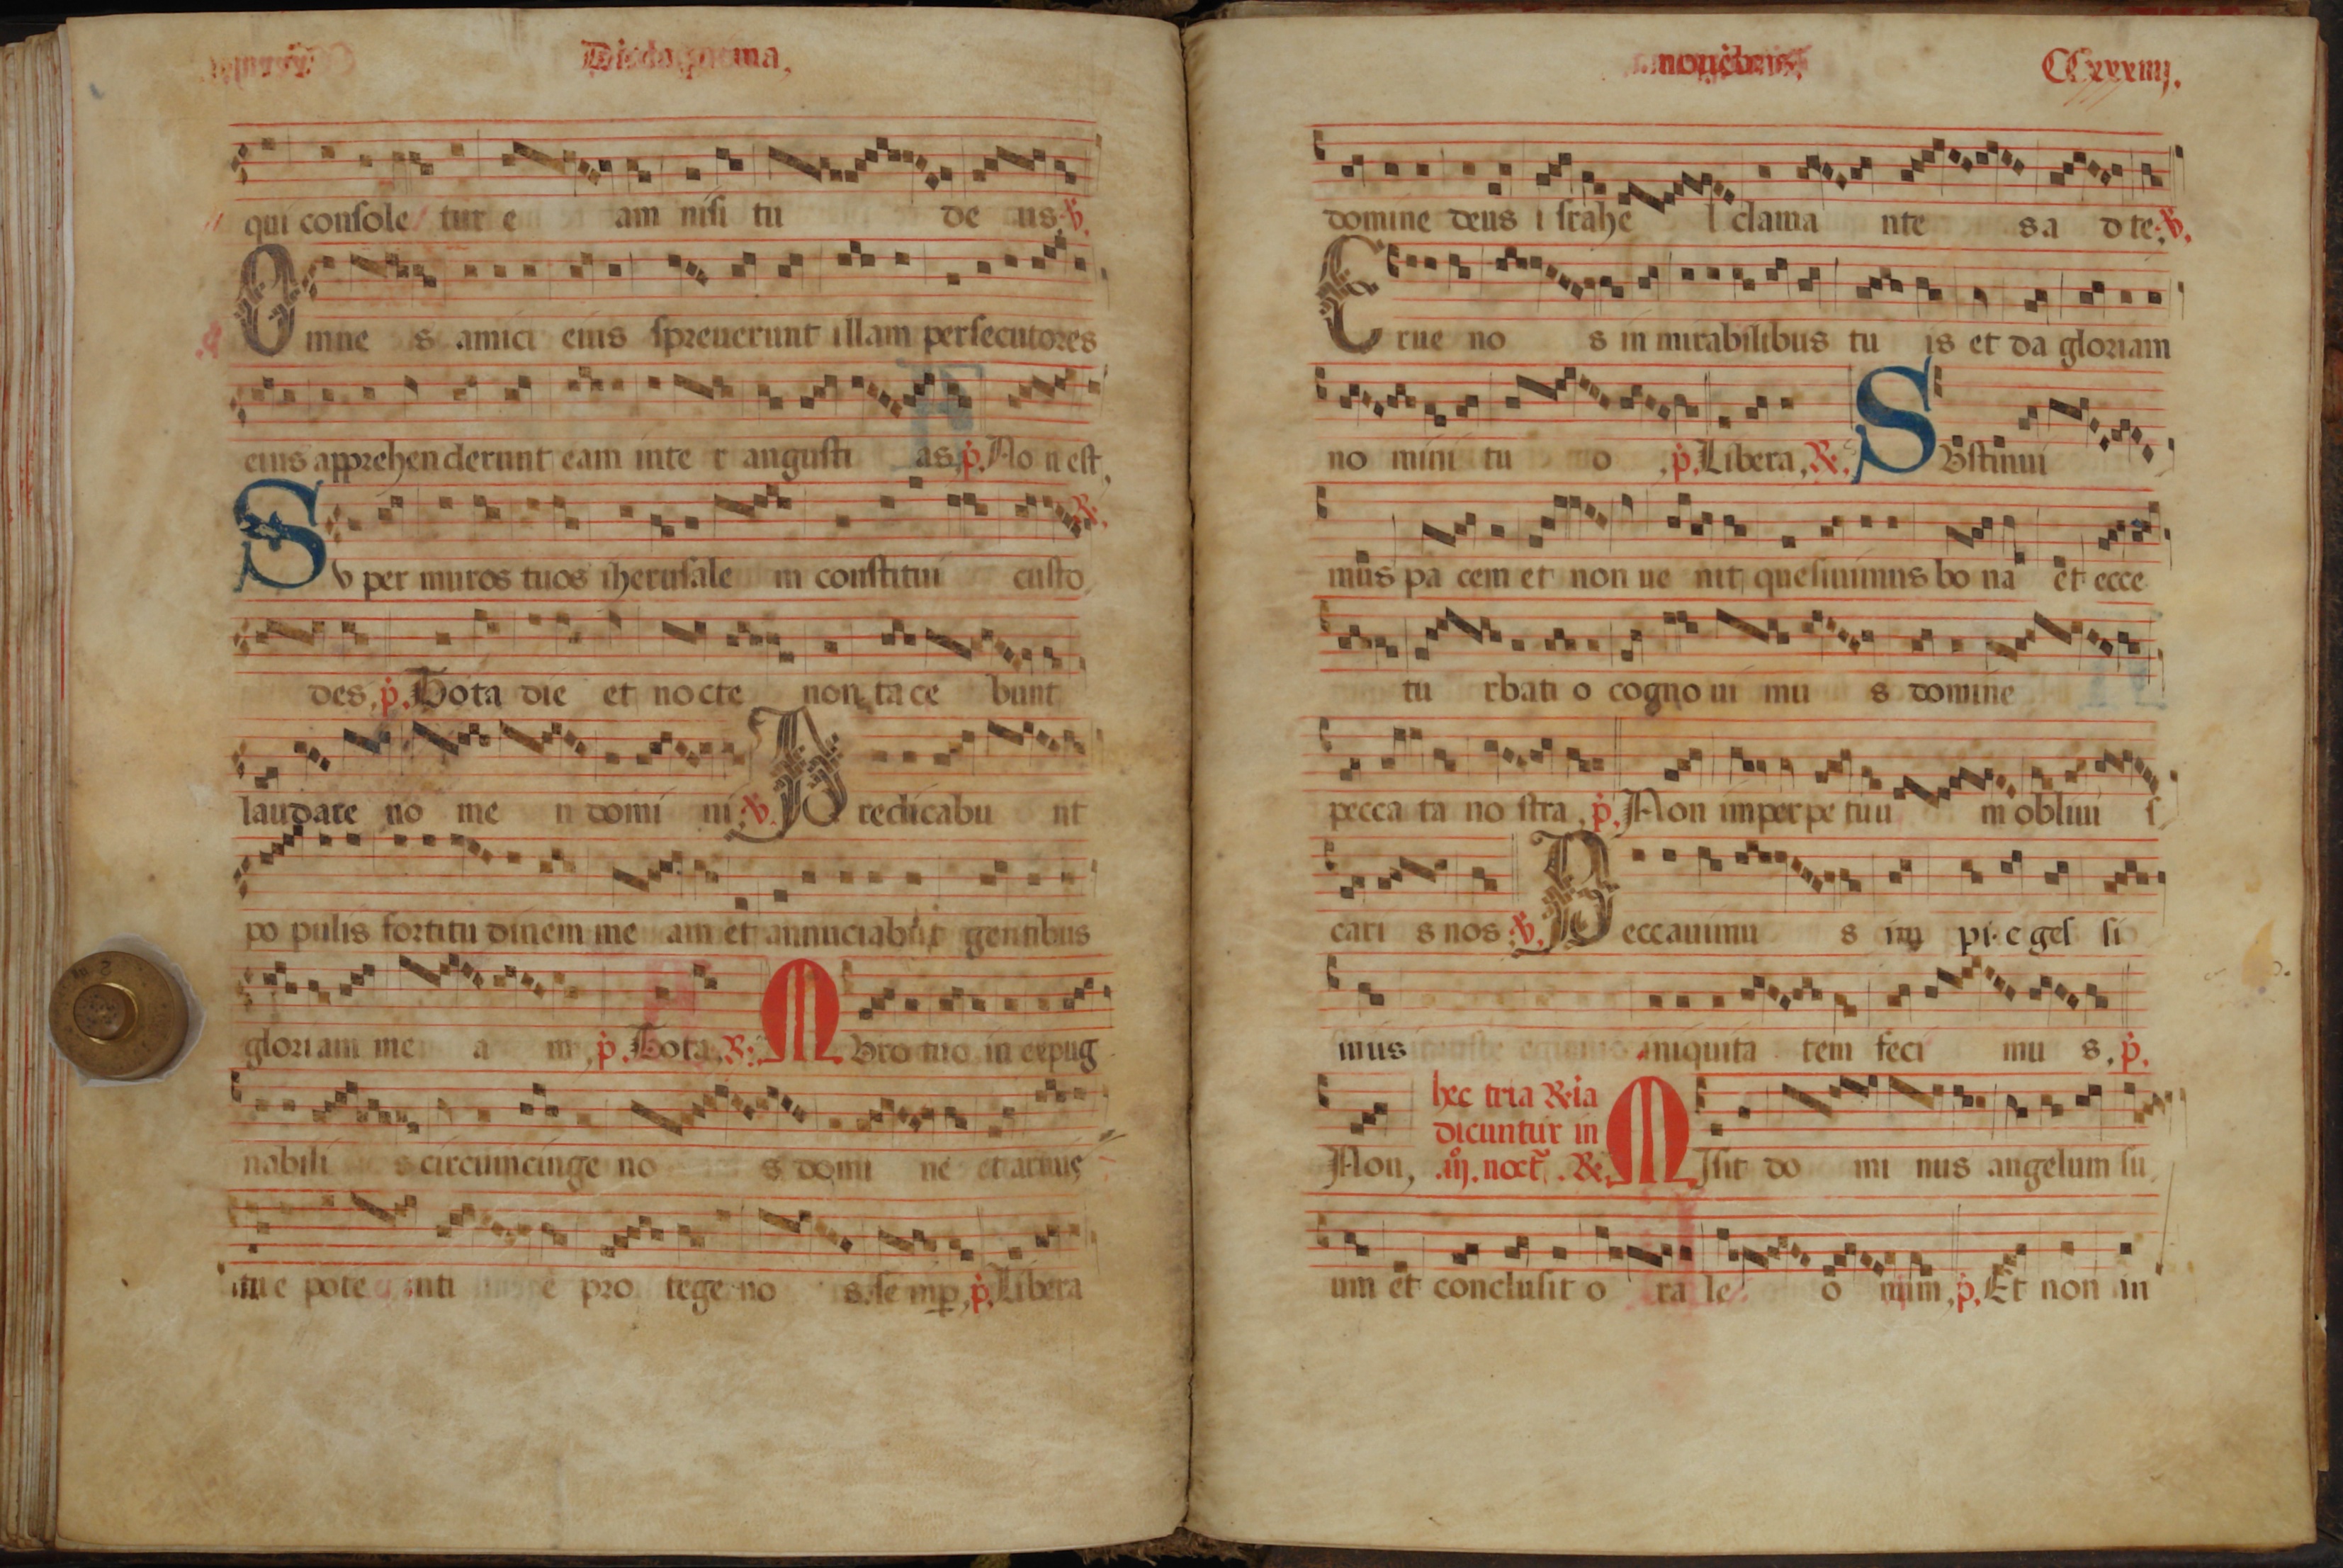 Dicda prima,
qui consoletur eam nisi tu deus. ℣.
Omnes amici eius spreuerunt illam persecutores
eius apprehenderunt eam inter angustias, p. Non est,
℞.
Super muros tuos iherusalem constitui custo
des, p. Tota die et nocte non tacebunt
laudare nomen domini. ℣. Predicabunt
populis fortitudinem meam et annunciabut gentibus
gloriam meam, p. Tota, ℞. Muro tuo inexpug
nabili circumcinge nos domine et armis
tue potenti protege nos semper, p. Libera
nouēbris, CCxxxiiij.
domine deus israhel clamantes ad te, ℣.
Erue nos in mirabilibus tuis et da gloriam
nomini tuo, p. Libera, ℞. Sustinui
mus pacem et non uenit quesiuimus bona et ecce
turbatio cognouimus domine
peccata nostra, p. Non imperpetuum obliui s
caris nos ℣. Peccauimus impie ges si
mus iniquitatem fecimus, p.
hec tria ℞ia
dicuntur in
Non, .iij. noct. ℞. Misit dominus angelum su
um et conclusit ora leonum, p. Et non in